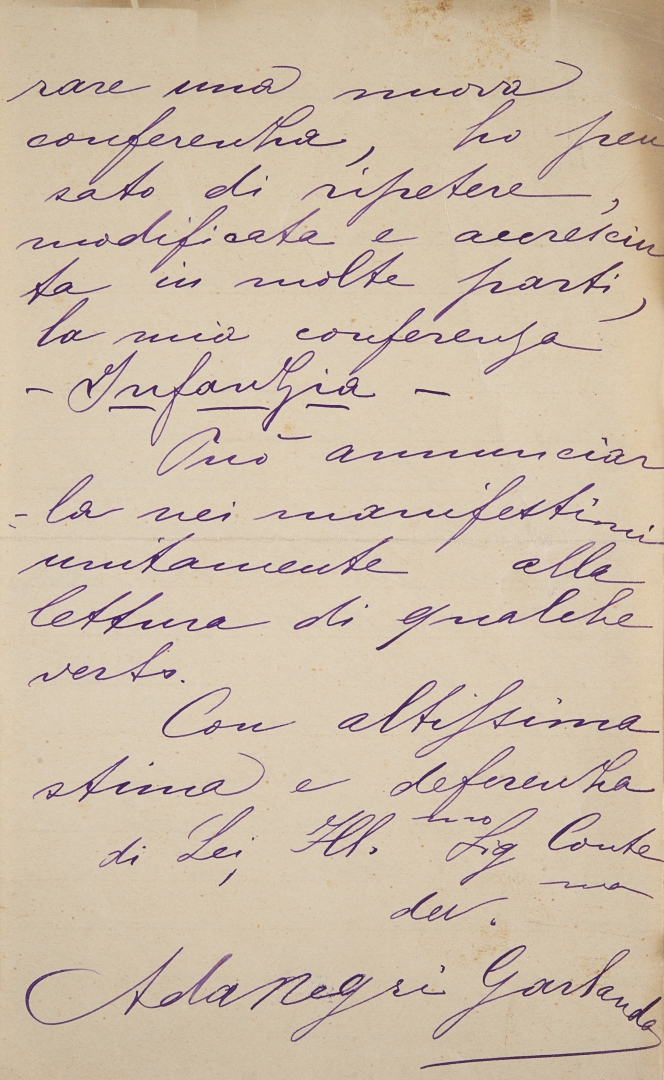 rare una nuova
conferenza, ho pen
sato di ripetere,
modificata e accresciu
ta in molte parti,
la mia conferenza
- Infanzia -
Può annunciar
-la nei manifestini
unitamente alla
lettura di qualche
verso.
Con altissima
stima e deferenza
di Lei, Ill.mo Sig Conte
dev.ma
Ada Negri Garlanda